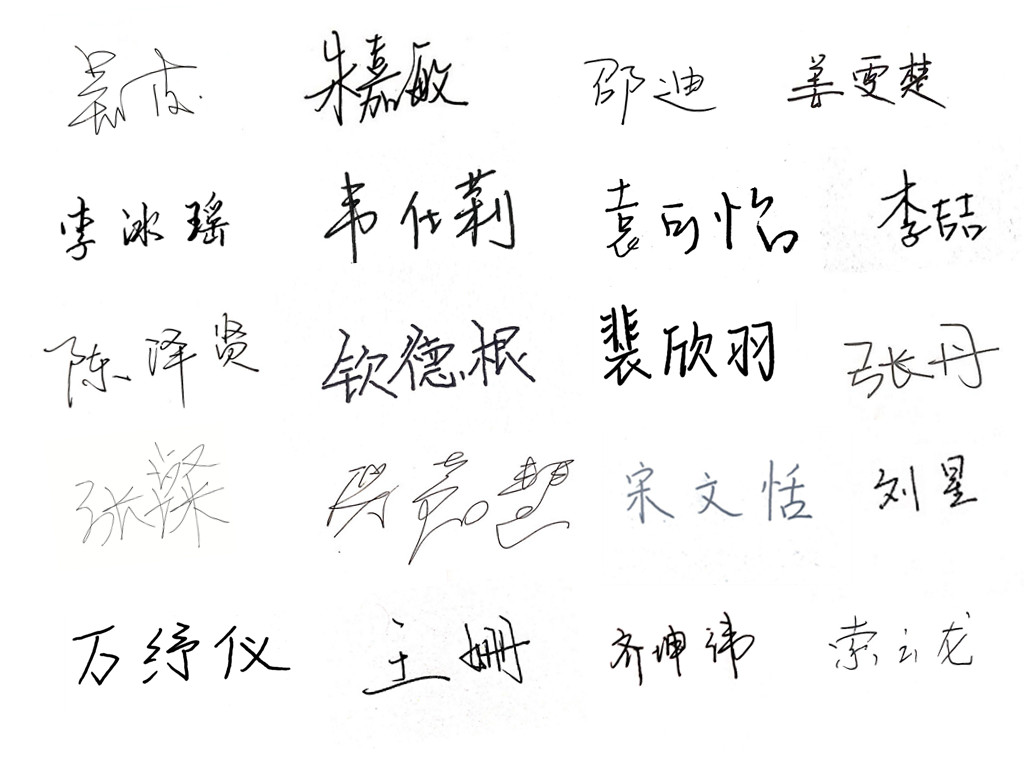 朱嘉敏 邵迪 姜雯楚
李冰瑶 韦仕莉 袁可怡 李喆
陈泽贤 钦德根 裴欣羽 张丹
张 宋文恬 刘星
万纾仪 王姗 齐坤祎 索云龙